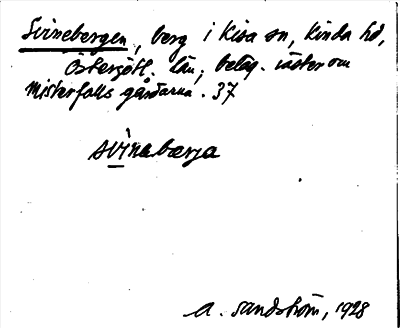 Svinebergen, berg i Kisa sn, Kinda hd,
Östergötl. län, beläg. väster om
Misterfalls gårdarna. 37
svinabærja
A. Sandström, 1928